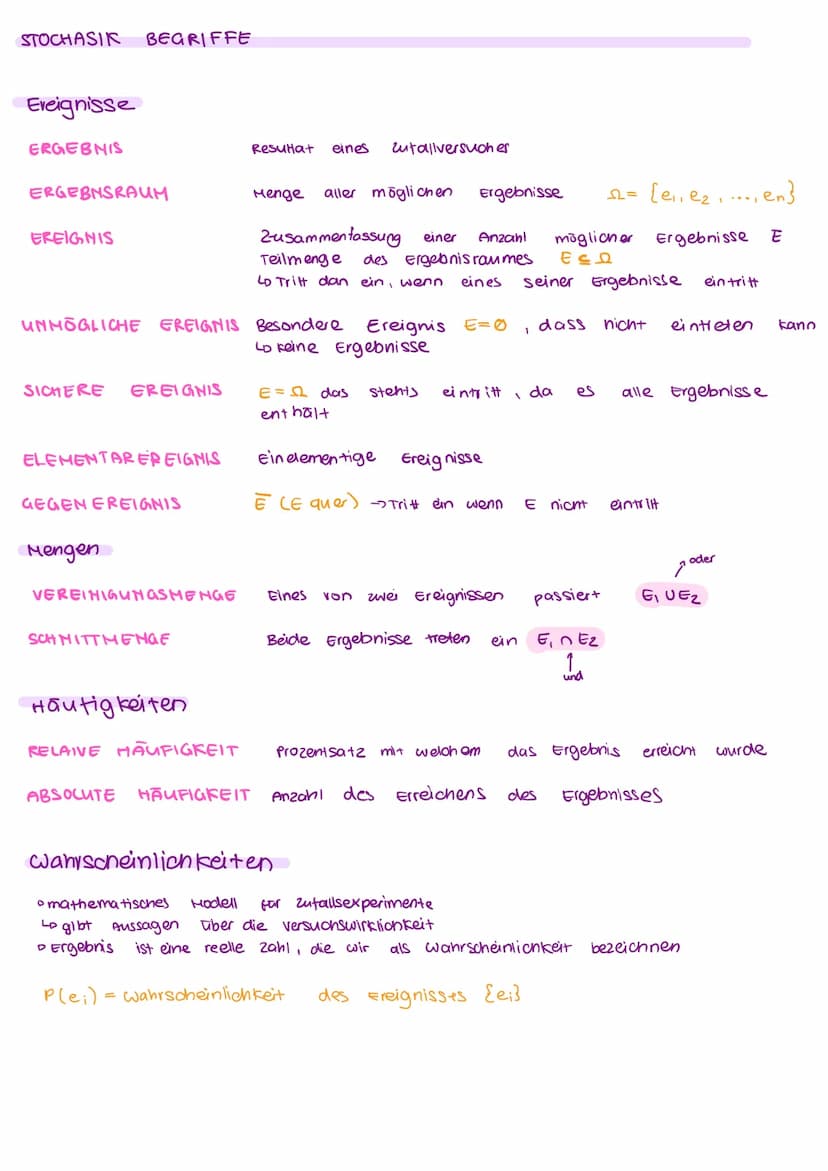 STOCHASIK BEGRIFFE
Ereignisse
ERGEBNIS Resultat eines Zufallversuches
ERGEBNSRAUM Menge aller möglichen Ergebnisse Ω = {e₁, e₂, ..., en}
EREIGNIS Zusammenfassung einer Anzahl möglicher Ergebnisse E
Teilmenge des Ergebnisraumes E ⊆ Ω
↳ Tritt dan ein, wenn eines seiner Ergebnisse eintritt
UNMÖGLICHE EREIGNIS Besondere Ereignis E=∅, dass nicht eintreten kann
↳ keine Ergebnisse
SICHERE EREIGNIS E = Ω das stehts eintritt, da es alle Ergebnisse
enthält
ELEMENTAREREIGNIS Einelementige Ereignisse
GEGENEREIGNIS E̅ (E quer) → Tritt ein wenn E nicht eintritt
Mengen
oder
VEREINIGUNGSMENGE Eines von zwei Ereignissen passiert E₁ ∪ E₂
SCHNITTMENGE Beide Ergebnisse treten ein E₁ ∩ E₂
und
Häufigkeiten
RELAIVE HÄUFIGKEIT Prozentsatz mit welchem das Ergebnis erreicht wurde
ABSOLUTE HÄUFIGKEIT Anzahl des Erreichens des Ergebnisses
Wahrscheinlichkeiten
◦ mathematisches Modell für Zufallsexperimente
↳ gibt Aussagen über die Versuchswirklichkeit
◦ Ergebnis ist eine reelle Zahl, die wir als Wahrscheinlichkeit bezeichnen
P(eᵢ) = Wahrscheinlichkeit des Ereignisses {eᵢ}